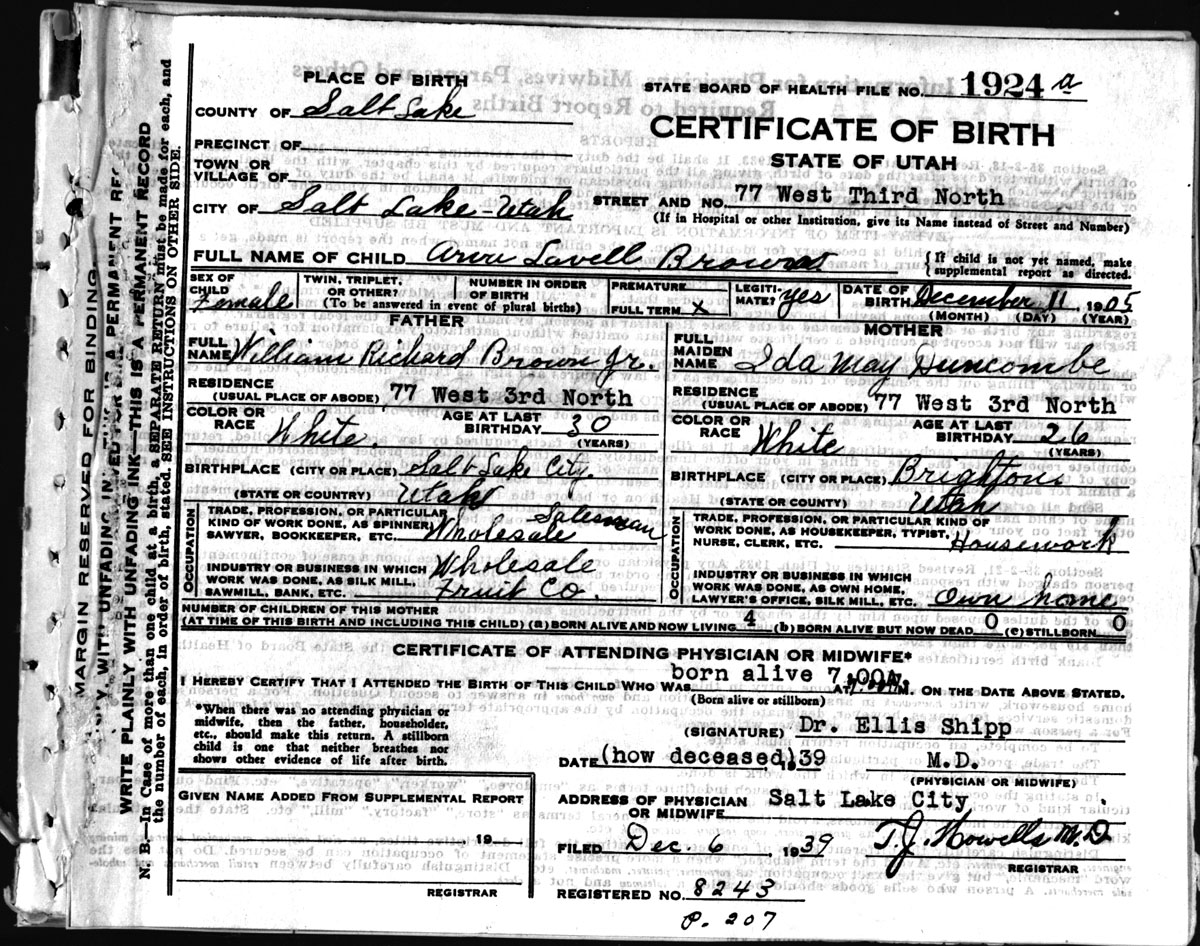 PLACE OF BIRTH
STATE BOARD OF HEALTH FILE NO. 1924 a
COUNTY OF Salt Lake
CERTIFICATE OF BIRTH
PRECINCT OF
STATE OF UTAH
TOWN OR VILLAGE OF
CITY OF Salt Lake-Utah
STREET AND NO. 77 West Third North
(If in Hospital or other Institution, give its Name instead of Street and Number)
FULL NAME OF CHILD Lavell Brown
{If child is not yet named, make supplemental report as directed.
SEX OF CHILD Female
TWIN, TRIPLET, OR OTHER?
(To be answered in event of plural births)
NUMBER IN ORDER OF BIRTH
PREMATURE
FULL TERM x
LEGITIMATE? yes
DATE OF BIRTH December 11 1905
(MONTH) (DAY) (YEAR)
FATHER
FULL NAME William Richard Brown Jr.
RESIDENCE
(USUAL PLACE OF ABODE) 77 West 3rd North
COLOR OR RACE White.
AGE AT LAST BIRTHDAY 30
(YEARS)
BIRTHPLACE (CITY OR PLACE) Salt Lake City.
(STATE OR COUNTRY) Utah
OCCUPATION
TRADE, PROFESSION, OR PARTICULAR
KIND OF WORK DONE, AS SPINNER,
SAWYER, BOOKKEEPER, ETC. Wholesale Salesman
INDUSTRY OR BUSINESS IN WHICH
WORK WAS DONE, AS SILK MILL.
SAWMILL, BANK, ETC. Wholesale Fruit Co.
MOTHER
FULL MAIDEN NAME Ida May Duncombe
RESIDENCE
(USUAL PLACE OF ABODE) 77 West 3rd North
COLOR OR RACE White
AGE AT LAST BIRTHDAY 26
(YEARS)
BIRTHPLACE (CITY OR PLACE) Brighton.
(STATE OR COUNTY) Utah
OCCUPATION
TRADE, PROFESSION, OR PARTICULAR KIND OF
WORK DONE, AS HOUSEKEEPER, TYPIST,
NURSE, CLERK, ETC. Housework
INDUSTRY OR BUSINESS IN WHICH
WORK WAS DONE, AS OWN HOME,
LAWYER'S OFFICE, SILK MILL, ETC. Own home
NUMBER OF CHILDREN OF THIS MOTHER
(AT TIME OF THIS BIRTH AND INCLUDING THIS CHILD) (a) BORN ALIVE AND NOW LIVING 4 (b) BORN ALIVE BUT NOW DEAD 0 (c) STILLBORN 0
CERTIFICATE OF ATTENDING PHYSICIAN OR MIDWIFE*
I HEREBY CERTIFY THAT I ATTENDED THE BIRTH OF THIS CHILD WHO WAS born alive AT 7:00A. M. ON THE DATE ABOVE STATED.
(Born alive or stillborn)
*When there was no attending physician or
midwife, then the father, householder,
etc., should make this return. A stillborn
child is one that neither breathes nor
shows other evidence of life after birth.
(SIGNATURE) Dr. Ellis Shipp
DATE (now deceased) 1939 M.D.
(PHYSICIAN OR MIDWIFE)
GIVEN NAME ADDED FROM SUPPLEMENTAL REPORT
19
REGISTRAR
ADDRESS OF PHYSICIAN OR MIDWIFE Salt Lake City
FILED Dec. 6 1939 T.J. Howells M.D.
REGISTRAR
REGISTERED NO. 8243
P. 207
MARGIN RESERVED FOR BINDING
WRITE PLAINLY WITH UNFADING INK—THIS IS A PERMANENT RECORD
N. B.—In Case of more than one child at a birth, a SEPARATE RETURN must be made for each, and
the number of each, in order of birth, stated. SEE INSTRUCTIONS ON OTHER SIDE.